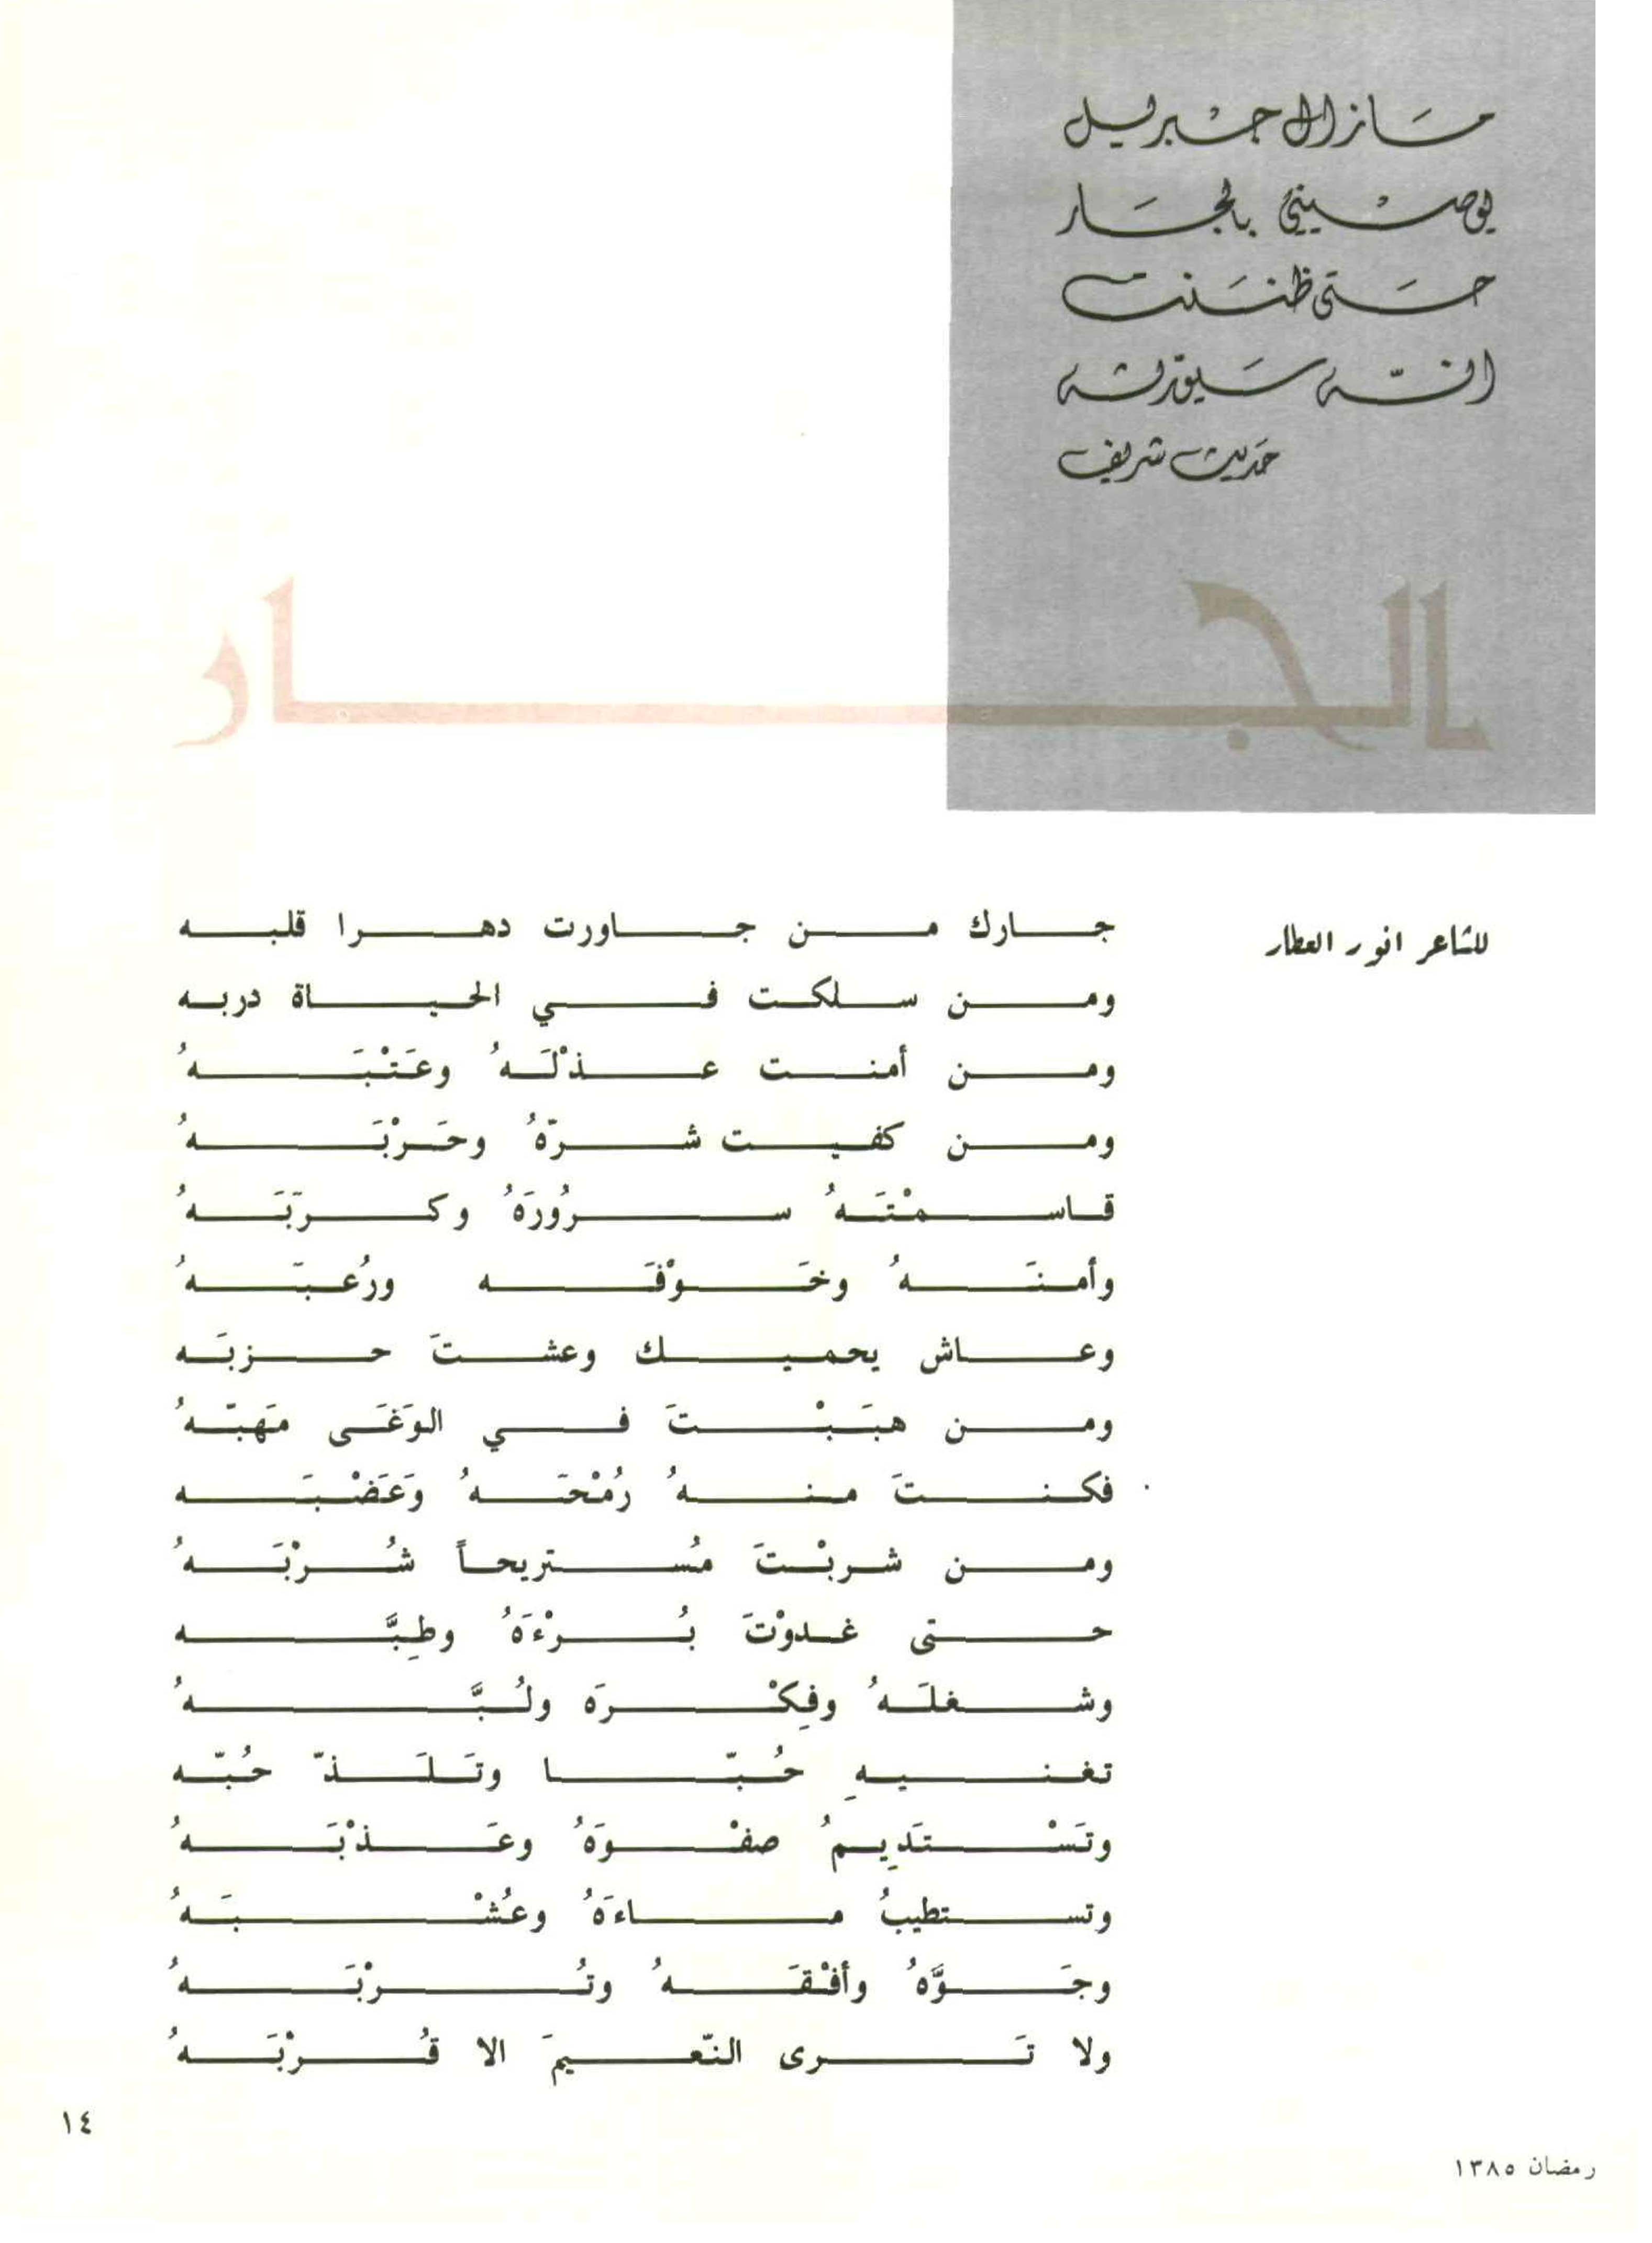 مَازال جبْريل
يوصْيني بالجَار
حَتى ظننَت
انّه سَيورّثه
حَديث شريف
الجار
للشاعر انور العطار
جارك من جاورت دهرا قلبه
ومن سلكت في الحياة دربه
ومن أمنت عذْلَهُ وعَتْبَهُ
ومن كفيت شرّهُ وحَرْبَهُ
قاسمْتَهُ سرُورَهُ وكربَهُ
وأمنَهُ وخَوْفَه ورُعبَهُ
وعاش يحميك وعشتَ حزبَه
ومن هبَبْتَ في الوَغَى مَهبّهُ
فكنتَ منهُ رُمْحَهُ وَعَضْبَه
ومن شربْتَ مُستريحاً شُرْبَهُ
حتى غدوْتَ بُرْءَهُ وطِبَّه
وشغلَهُ وفِكْرَه ولُبَّهُ
تغنيهِ حُبّا وتَلَذّ حُبّه
وتَسْتَدِيمُ صفْوَهُ وعَذْبَهُ
وتستطيبُ ماءَهُ وعُشْبَهُ
وجَوَّهُ وأفْقَهُ وتُرْبَهُ
ولا تَرى النّعيمَ الا قُرْبَهُ
١٤
رمضان ١٣٨٥